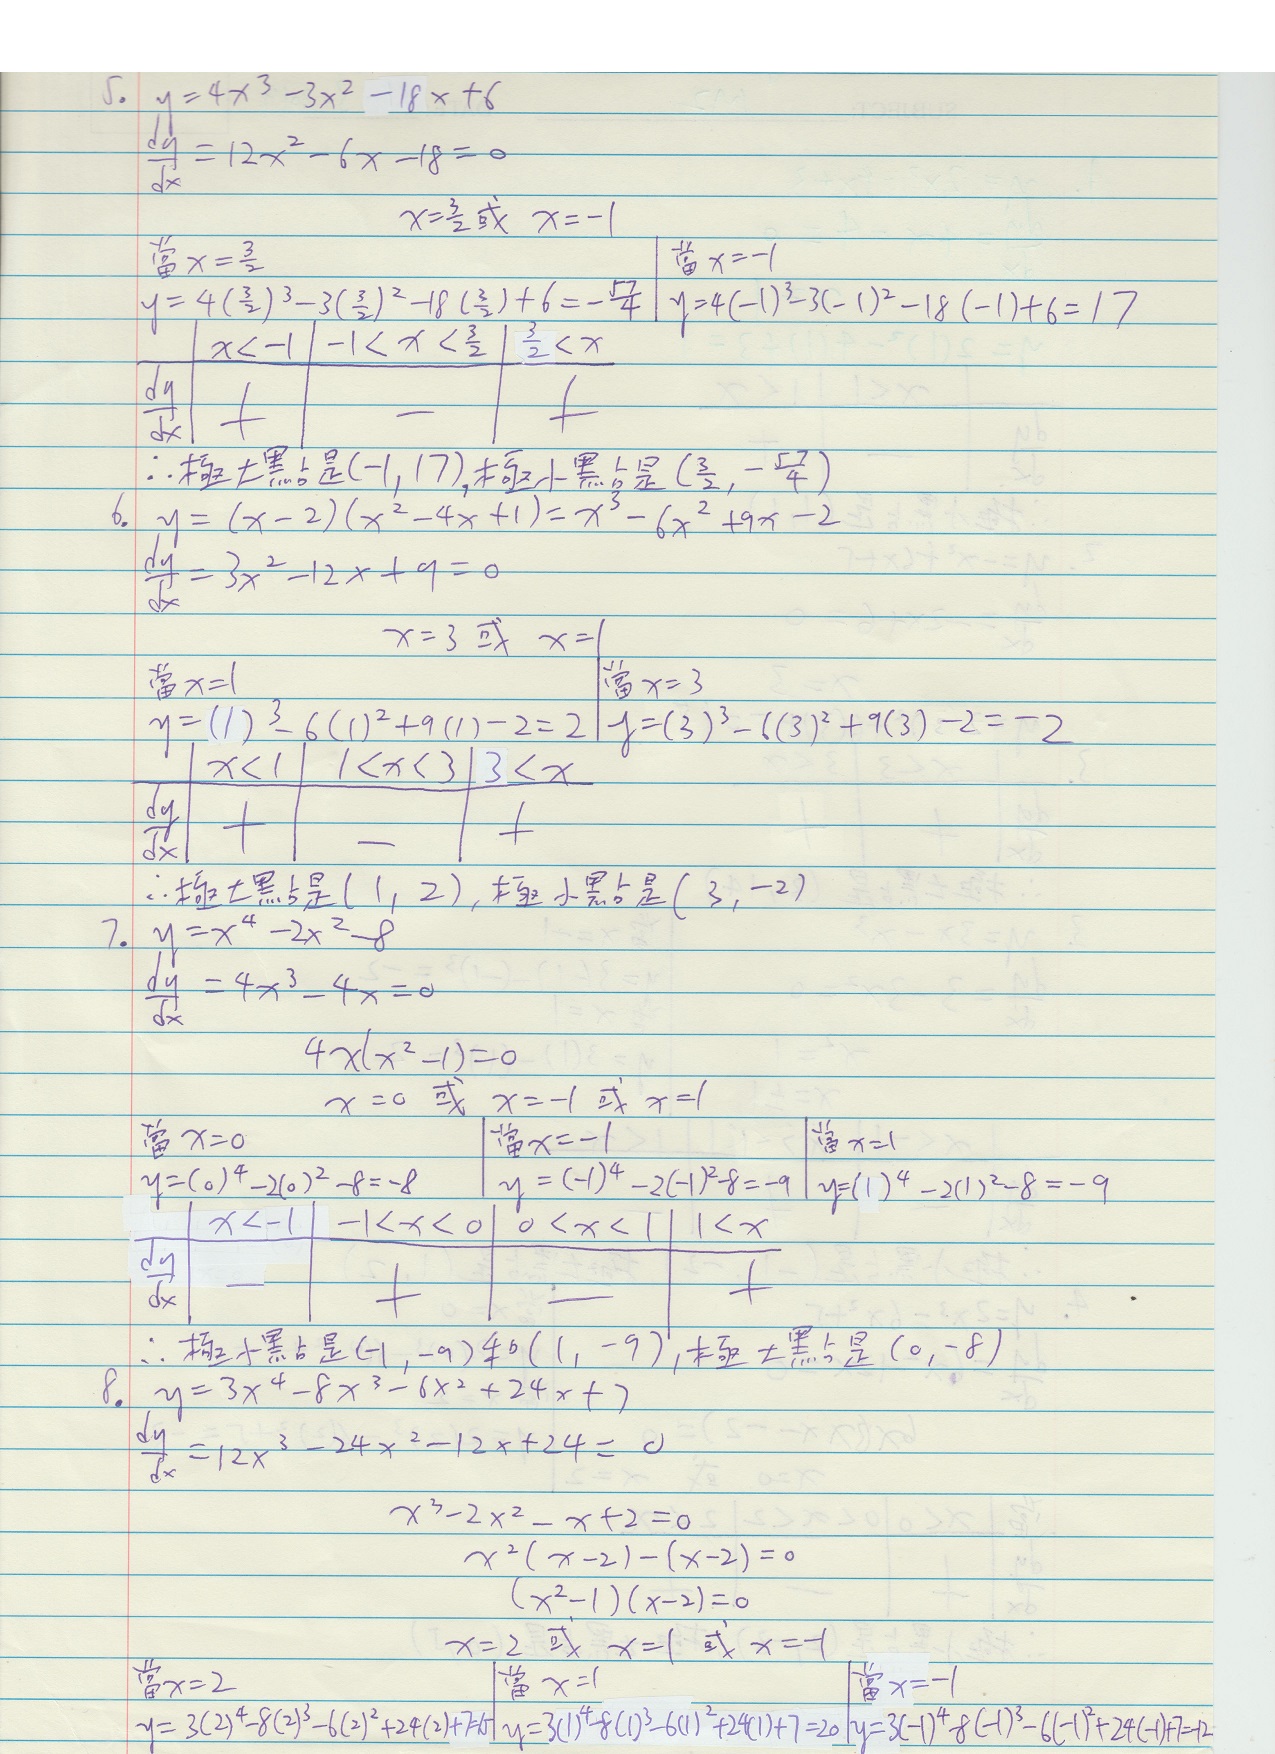 5. y=4x³-3x²-18x+6
dy/dx=12x²-6x-18=0
x=3/2或 x=-1
當x=3/2 當x=-1
y=4(3/2)³-3(3/2)²-18(3/2)+6=-57/4 y=4(-1)³-3(-1)²-18(-1)+6=17
x<-1 -1<x<3/2 3/2<x
dy/dx + - +
∴極大點是(-1,17),極小點是(3/2,-57/4)
6. y=(x-2)(x²-4x+1)=x³-6x²+9x-2
dy/dx=3x²-12x+9=0
x=3 或 x=1
當x=1 當x=3
y=(1)³-6(1)²+9(1)-2=2 y=(3)³-6(3)²+9(3)-2=-2
x<1 1<x<3 3<x
dy/dx + - +
∴極大點是(1,2),極小點是(3,-2)
7. y=x⁴-2x²-8
dy/dx=4x³-4x=0
4x(x²-1)=0
x=0 或 x=-1 或 x=1
當x=0 當x=-1 當x=1
y=(0)⁴-2(0)²-8=-8 y=(-1)⁴-2(-1)²-8=-9 y=(1)⁴-2(1)²-8=-9
x<-1 -1<x<0 0<x<1 1<x
dy/dx - + - +
∴極小點是(-1,-9)和(1,-9),極大點是(0,-8)
8. y=3x⁴-8x³-6x²+24x+7
dy/dx=12x³-24x²-12x+24=0
x³-2x²-x+2=0
x²(x-2)-(x-2)=0
(x²-1)(x-2)=0
x=2 或 x=1 或 x=-1
當x=2 當x=1 當x=-1
y=3(2)⁴-8(2)³-6(2)²+24(2)+7=15 y=3(1)⁴-8(1)³-6(1)²+24(1)+7=20 y=3(-1)⁴-8(-1)³-6(-1)²+24(-1)+7=-12